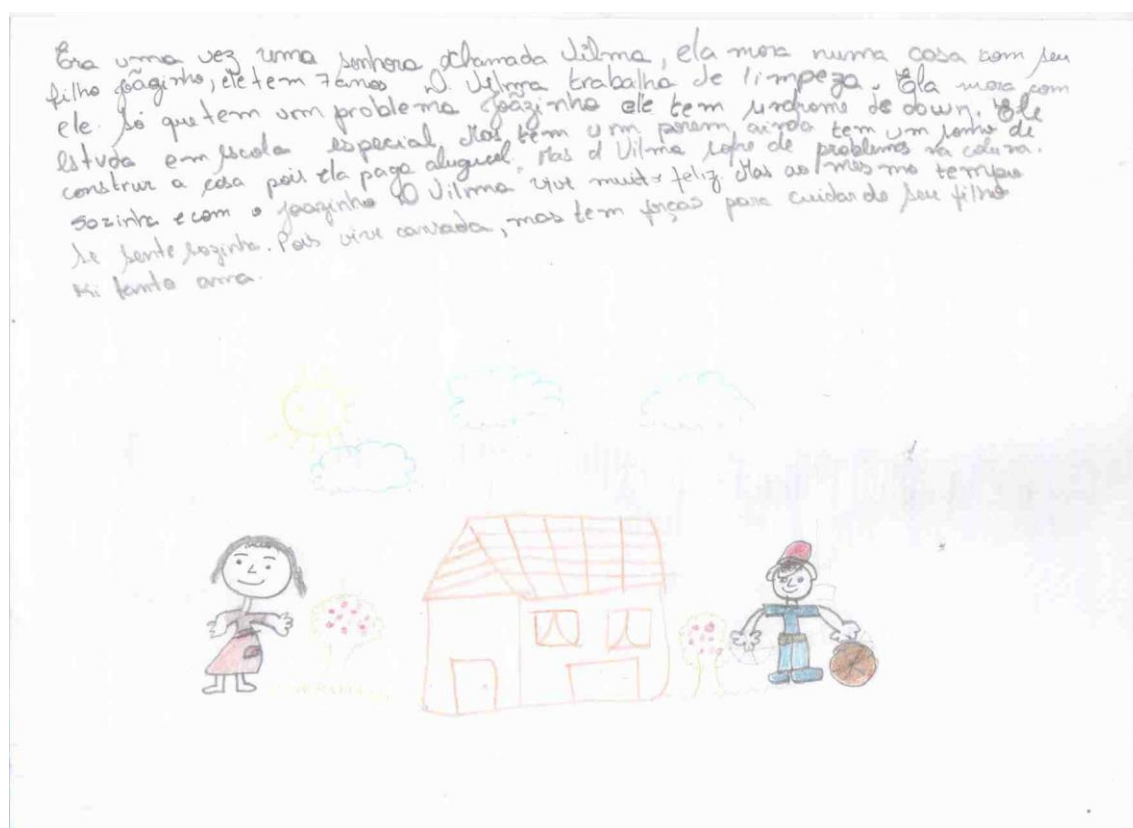 Era uma vez uma senhora chamada Vilma, ela mora numa casa com seu
filho Joãozinho, ele tem 7 anos D. Vilma trabalha de limpeza. Ela mora com
ele. Só que tem um problema Joãozinho ele tem sindrome de down. Ele
estuda em escola especial Mas tem um porem ainda tem um sonho de
construir a casa pois ela paga aluguel. Mas d Vilma sofre de problemas na coluna.
sozinha e com o Joazinho D Vilma vive muito feliz. Mas ao mesmo tempo
se sente sozinha. Pois vive cansada, mas tem forças para cuidar do seu filho
ki tanto ama.